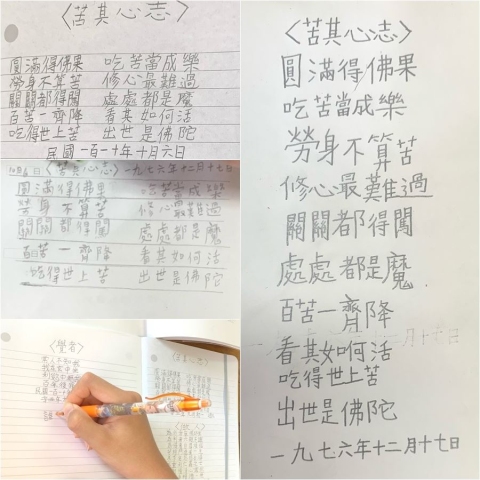 〈苦其心志〉
圓滿得佛果 吃苦當成樂
勞身不算苦 修心最難過
關關都得闖 處處都是魔
百苦一齊降 看其如何活
吃得世上苦 出世是佛陀
民國一百一十年十月六日
一九七六年十二月十七日
圓滿得佛果 吃苦當成樂
勞身不算苦 修心最難過
關關都得闖 處處都是魔
百苦一齊降 看其如何活
吃得世上苦 出世是佛陀
〈覺者〉
〈苦其心志〉
圓滿得佛果
吃苦當成樂
勞身不算苦
修心最難過
關關都得闖
處處都是魔
百苦一齊降
看其如何活
吃得世上苦
出世是佛陀
一九七六年十二月十七日